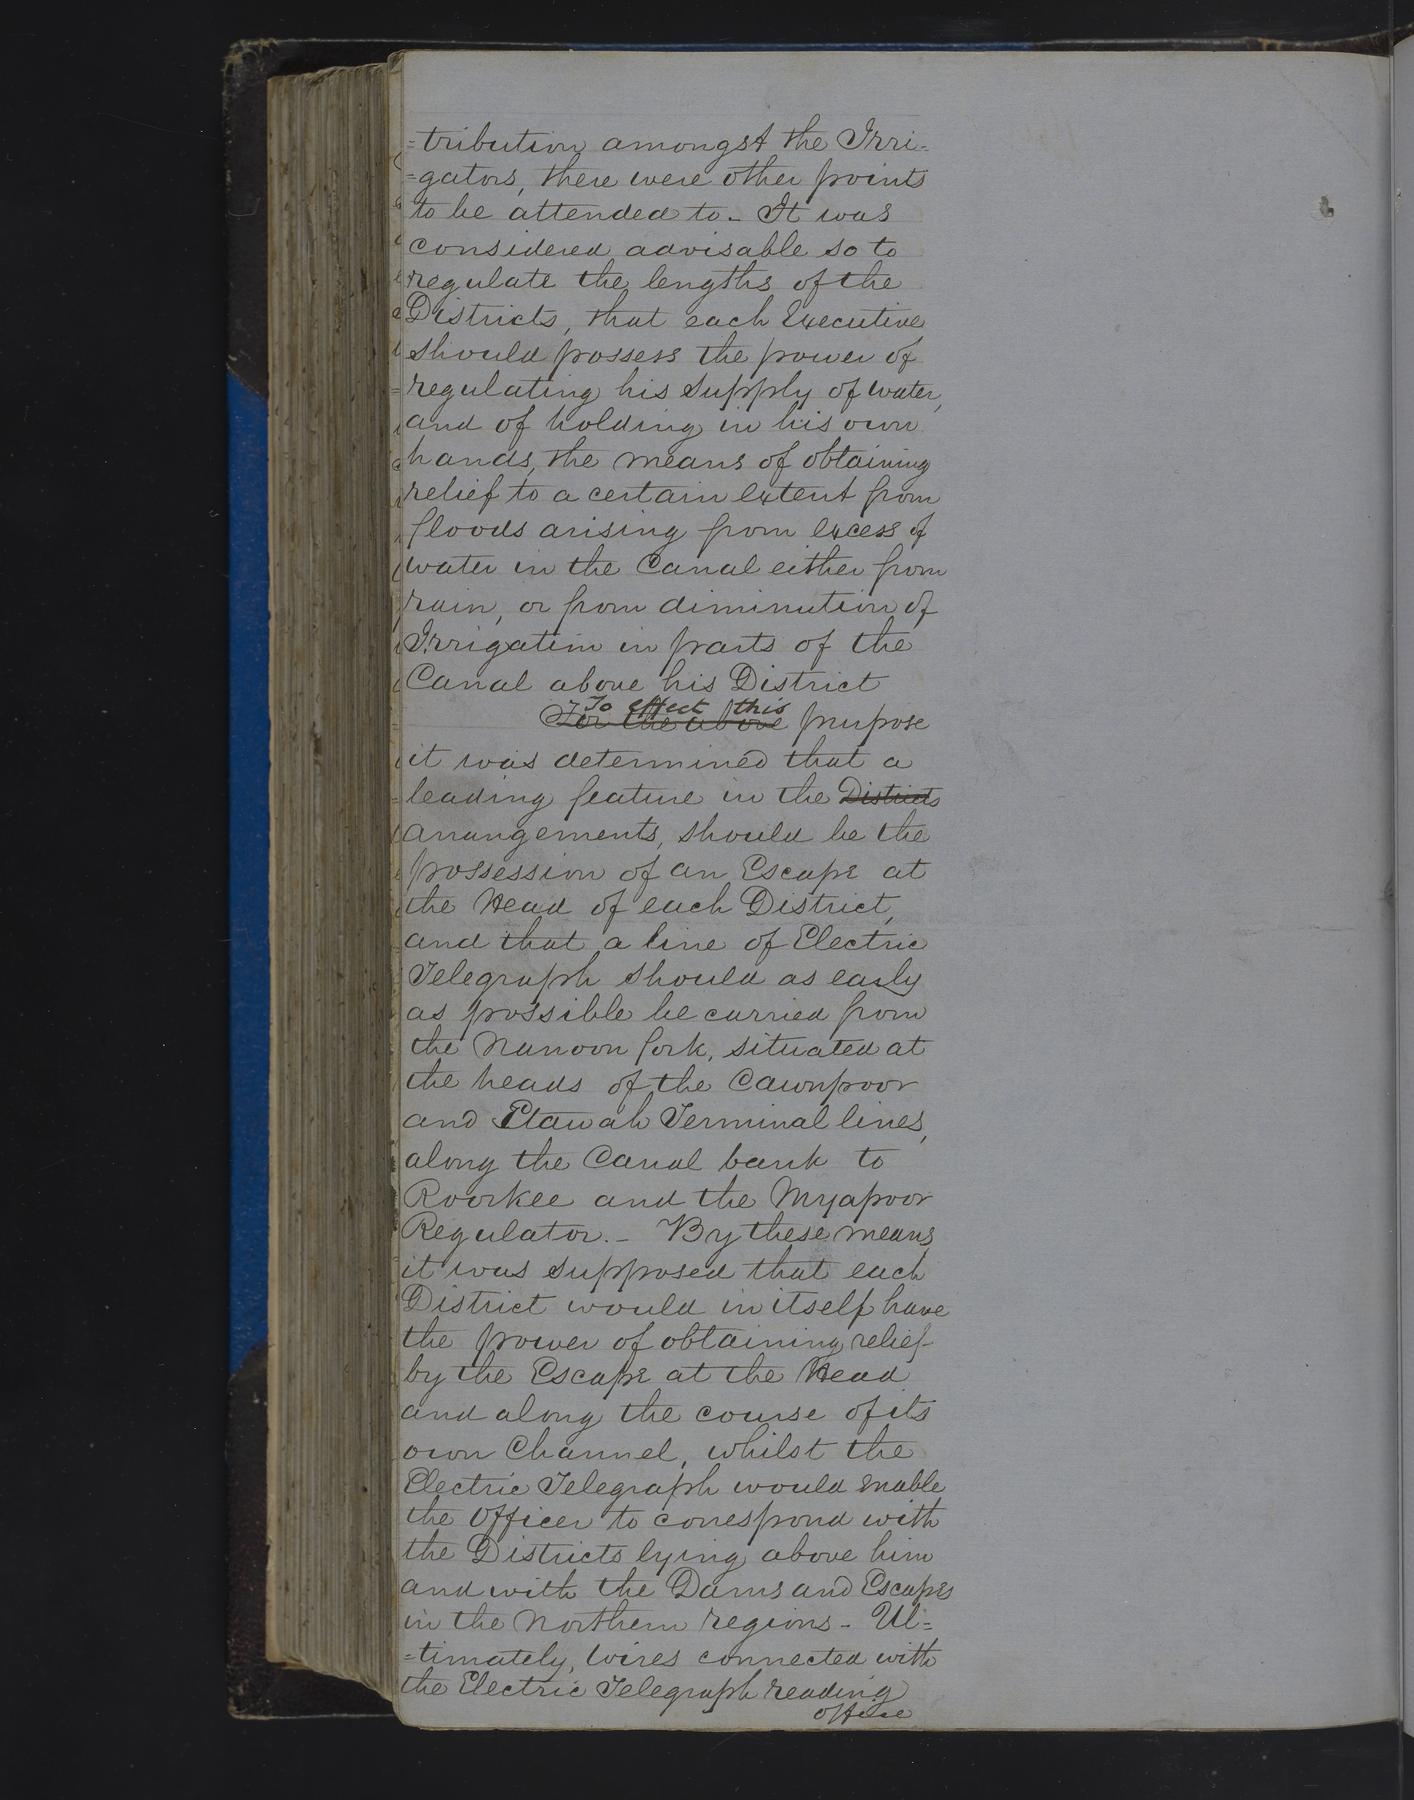 =tribution amongst the Irri=
=gators, there were other points
to be attended to. It was
considered advisable so to
regulate the lengths of the
Districts, that each Executive
should possess the power of
regulating his supply of water,
and of holding in his own
hands, the means of obtaining
relief to a certain extent from
floods arising from excess of
water in the Canal either from
rain, or from diminution of
Irrigation in parts of the
Canal above his District
To effect this
For the above purpose
it was determined that a
leading feature in the Districts
arrangements, should be the
possession of an Escape at
the Head of each District,
and that a line of Electric
Telegraph should as early
as possible be carried from
the Nanoon fork, situated at
the heads of the Cawnpoor
and Etawah Terminal lines,
along the Canal bank to
Roorkee and the Myapoor
Regulator.- By these means
it was supposed that each
District would in itself have
the power of obtaining relief
by the Escape at the Head
and along the course of its
own Channel, whilst the
Electric Telegraph would enable
the Officer to correspond with
the Districts lying above him
and with the Dams and Escapes
in the Northern regions - Ul=
=timately, wires connected with
the Electric Telegraph reading
office